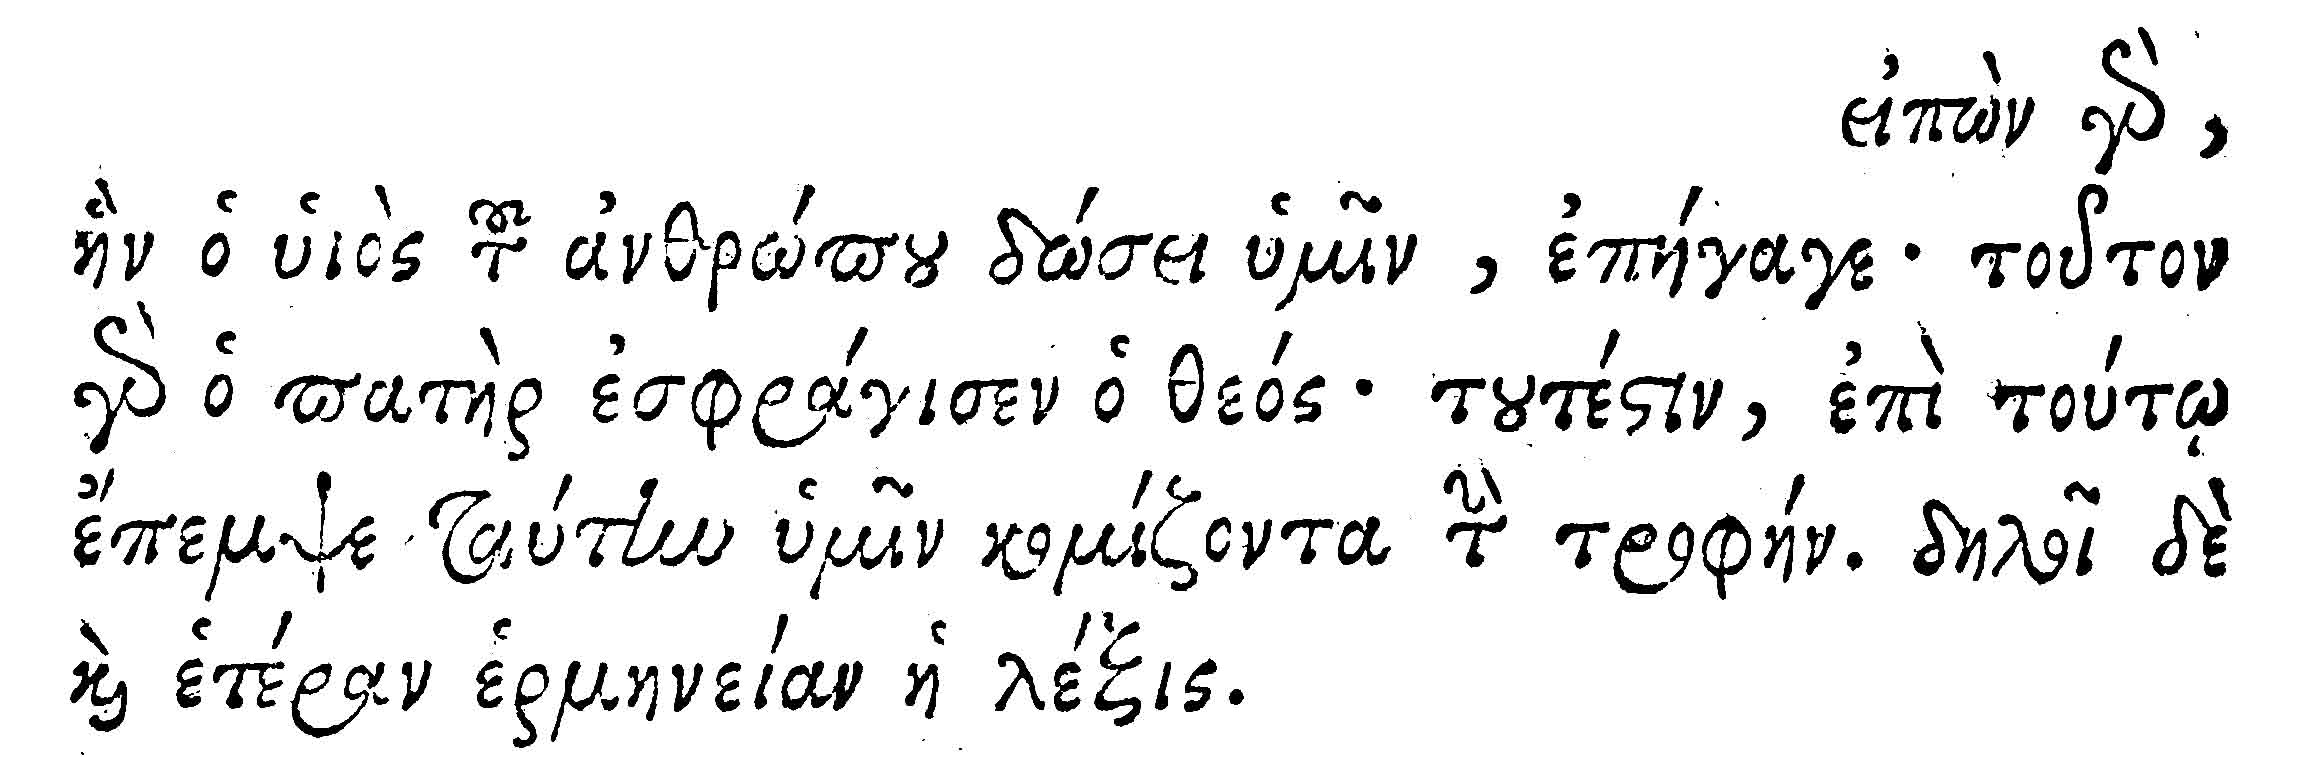 εἰπὼν γὰρ,
ἣν ὁ υἱὸς τοῦ ἀνθρώπου δώσει ὑμῖν, ἐπήγαγε· τοῦτον
γὰρ ὁ πατὴρ ἐσφράγισεν ὁ θεός· τουτέστιν, ἐπὶ τούτῳ
ἔπεμψε ταύτην ὑμῖν κομίζοντα τὴν τροφήν. δηλοῖ δὲ
καὶ ἑτέραν ἑρμηνείαν ἡ λέξις.